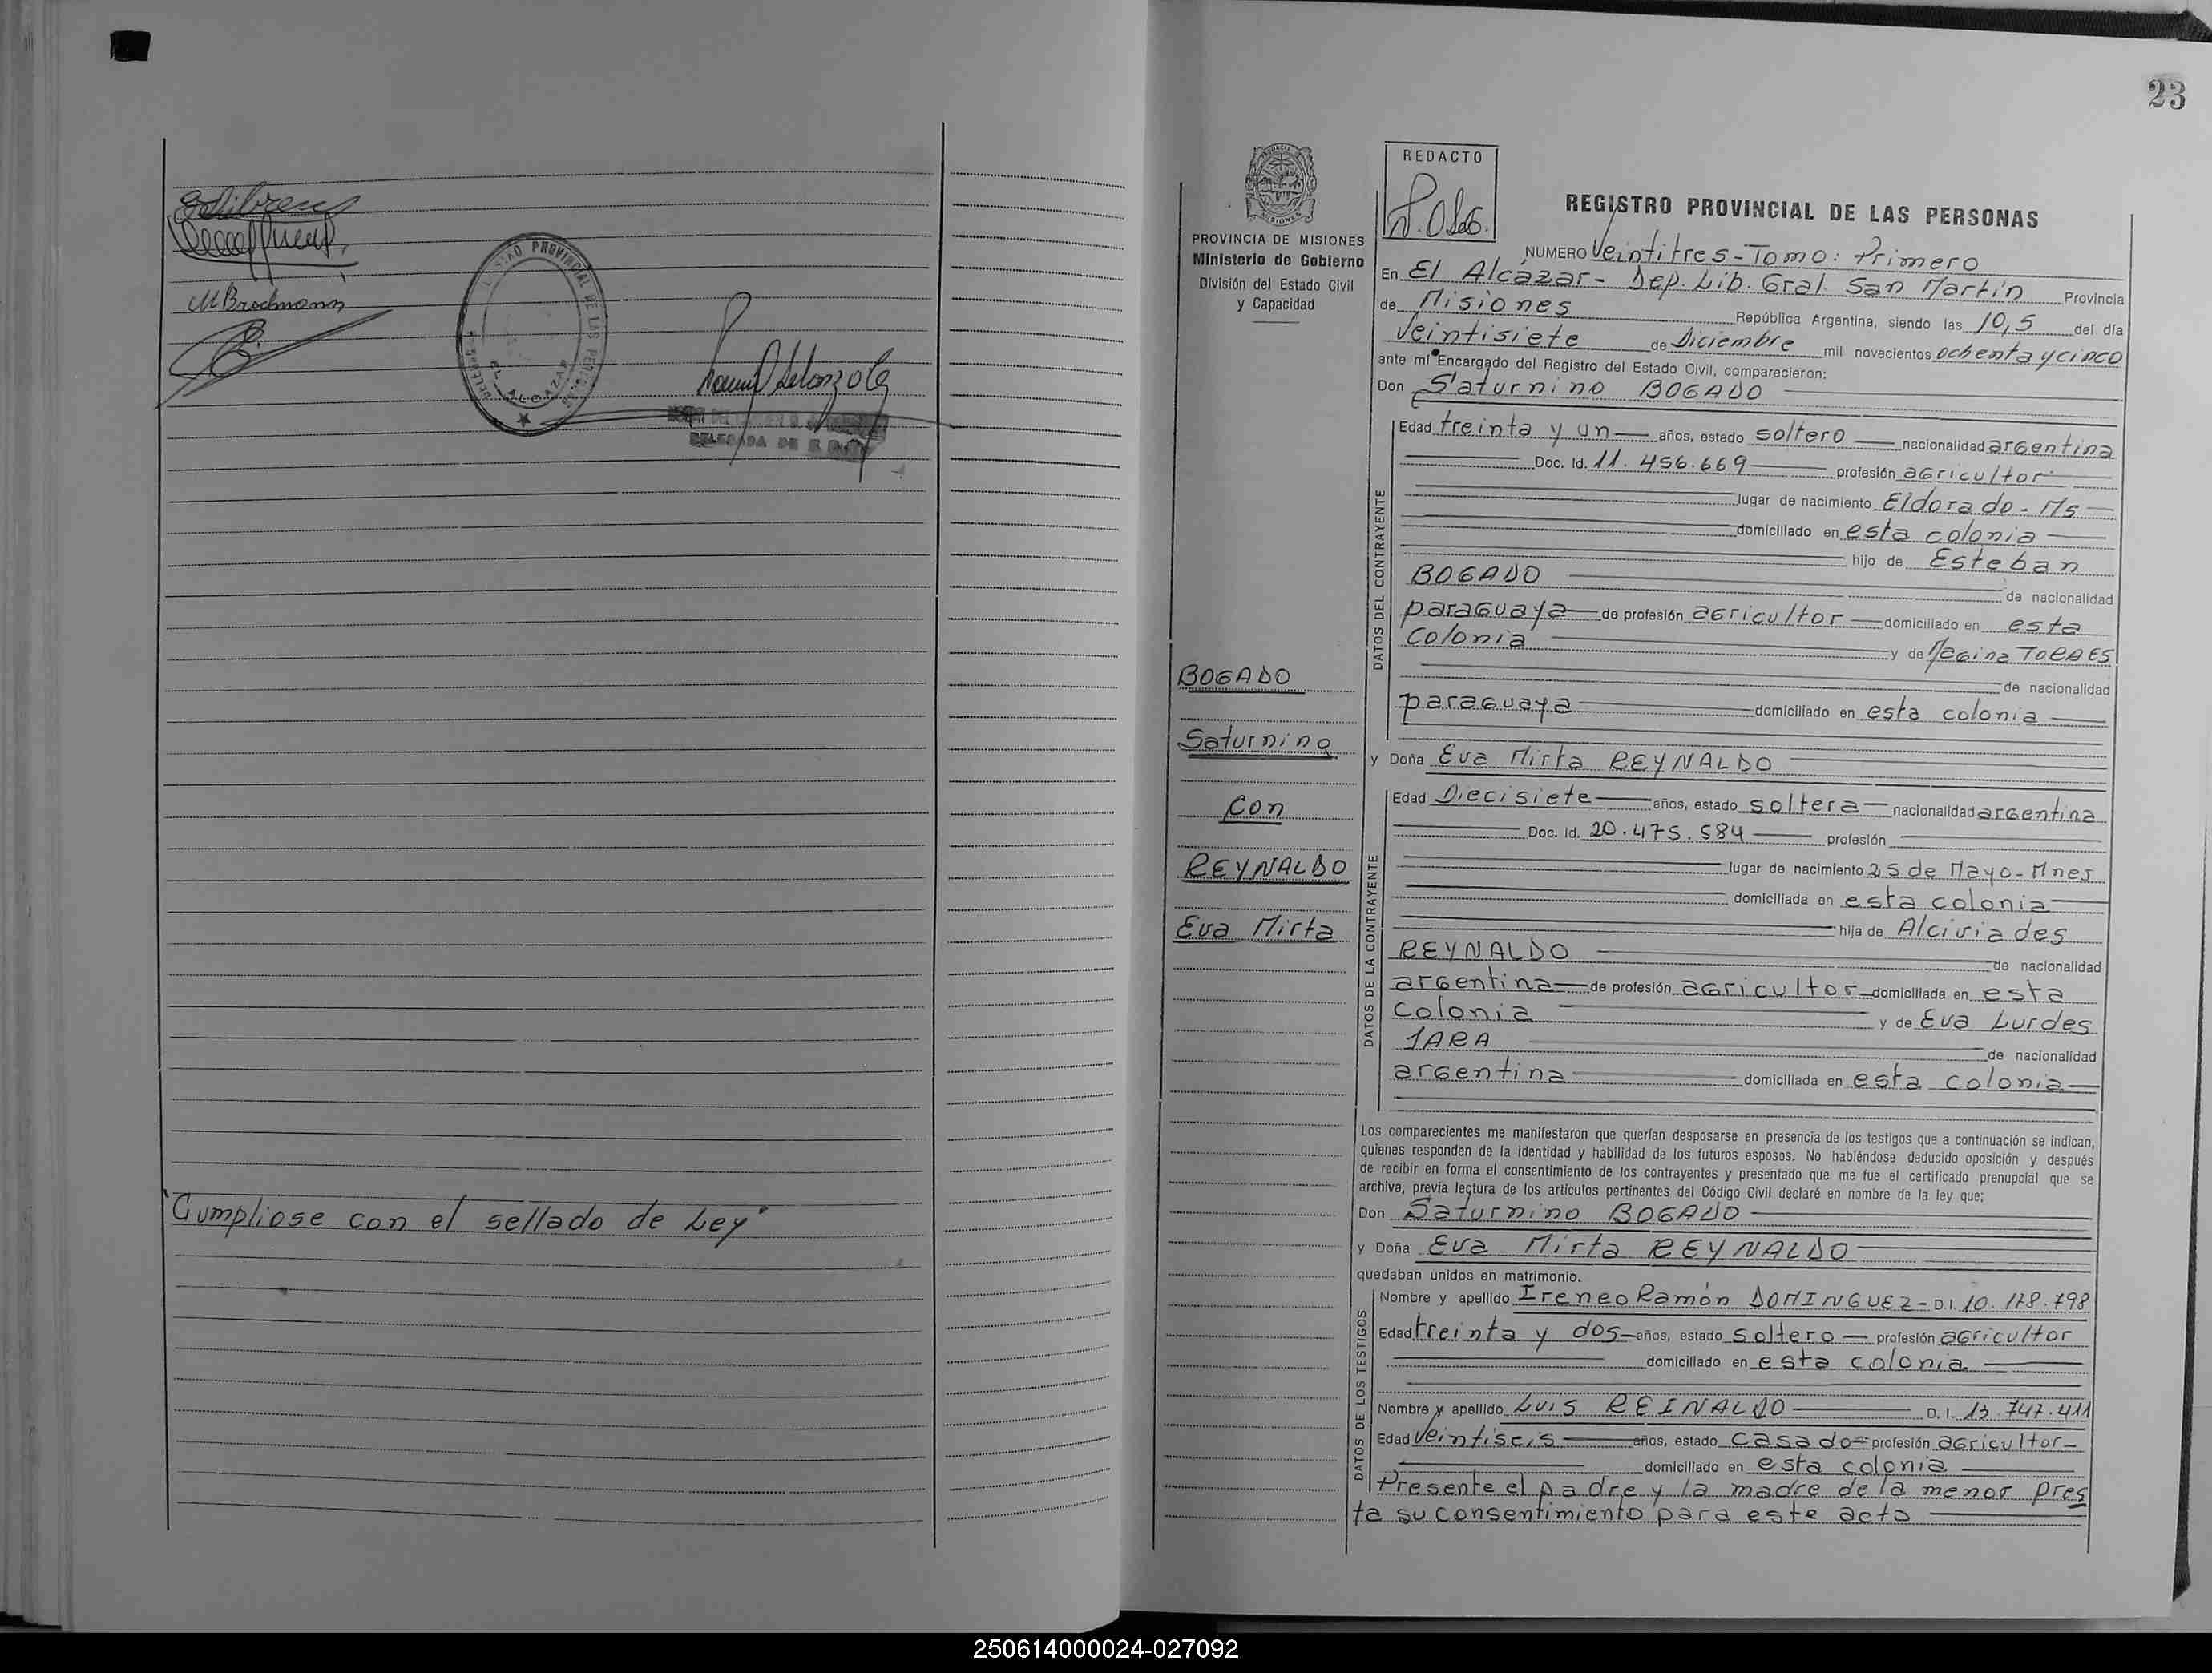 M Brochmann
REGISTRO PROVINCIAL DE LAS PERSONAS
EL ALCAZAR
DELEGADA DE
"Cumpliose con el sellado de Ley"
23
PROVINCIA DE MISIONES
Ministerio de Gobierno
División del Estado Civil
y Capacidad
REDACTO
REGISTRO PROVINCIAL DE LAS PERSONAS
NUMERO Veintitres - Tomo: Primero
En El Alcázar - Dep. Lib. Gral. San Martín Provincia
de Misiones República Argentina, siendo las 10,5 del día
Veintisiete de Diciembre mil novecientos ochenta y cinco
ante mí Encargado del Registro del Estado Civil, comparecieron:
Don Saturnino BOGADO
DATOS DEL CONTRAYENTE
Edad treinta y un años, estado soltero nacionalidad argentina
Doc. Id. 11.456.669 profesión agricultor
lugar de nacimiento Eldorado - Ms
domiciliado en esta colonia
hijo de Esteban
BOGADO de nacionalidad
paraguaya de profesión agricultor domiciliado en esta
colonia y de TORRES
de nacionalidad
paraguaya domiciliado en esta colonia
BOGADO
Saturnino
con
REYNALDO
Eva Mirta
y Doña Eva Mirta REYNALDO
DATOS DE LA CONTRAYENTE
Edad Diecisiete años, estado soltera nacionalidad argentina
Doc. Id. 20.475.584 profesión
lugar de nacimiento 25 de Mayo - Mnes
domiciliada en esta colonia
hija de Alciviades
REYNALDO de nacionalidad
argentina de profesión agricultor domiciliada en esta
colonia y de Eva Lurdes
JARA de nacionalidad
argentina domiciliada en esta colonia
Los comparecientes me manifestaron que querían desposarse en presencia de los testigos que a continuación se indican,
quienes responden de la identidad y habilidad de los futuros esposos. No habiéndose deducido oposición y después
de recibir en forma el consentimiento de los contrayentes y presentado que me fue el certificado prenupcial que se
archiva, previa lectura de los artículos pertinentes del Código Civil declaré en nombre de la ley que;
Don Saturnino BOGADO
y Doña Eva Mirta REYNALDO
quedaban unidos en matrimonio.
DATOS DE LOS TESTIGOS
Nombre y apellido Ireneo Ramón DOMINGUEZ - D.I. 10.178.798
Edad treinta y dos años, estado soltero profesión agricultor
domiciliado en esta colonia
Nombre y apellido Luis REINALDO D.I. 13.747.411
Edad Veintiseis años, estado casado profesión agricultor
domiciliado en esta colonia
Presente el padre y la madre de la menor pres
ta su consentimiento para este acto
250614000024-027092